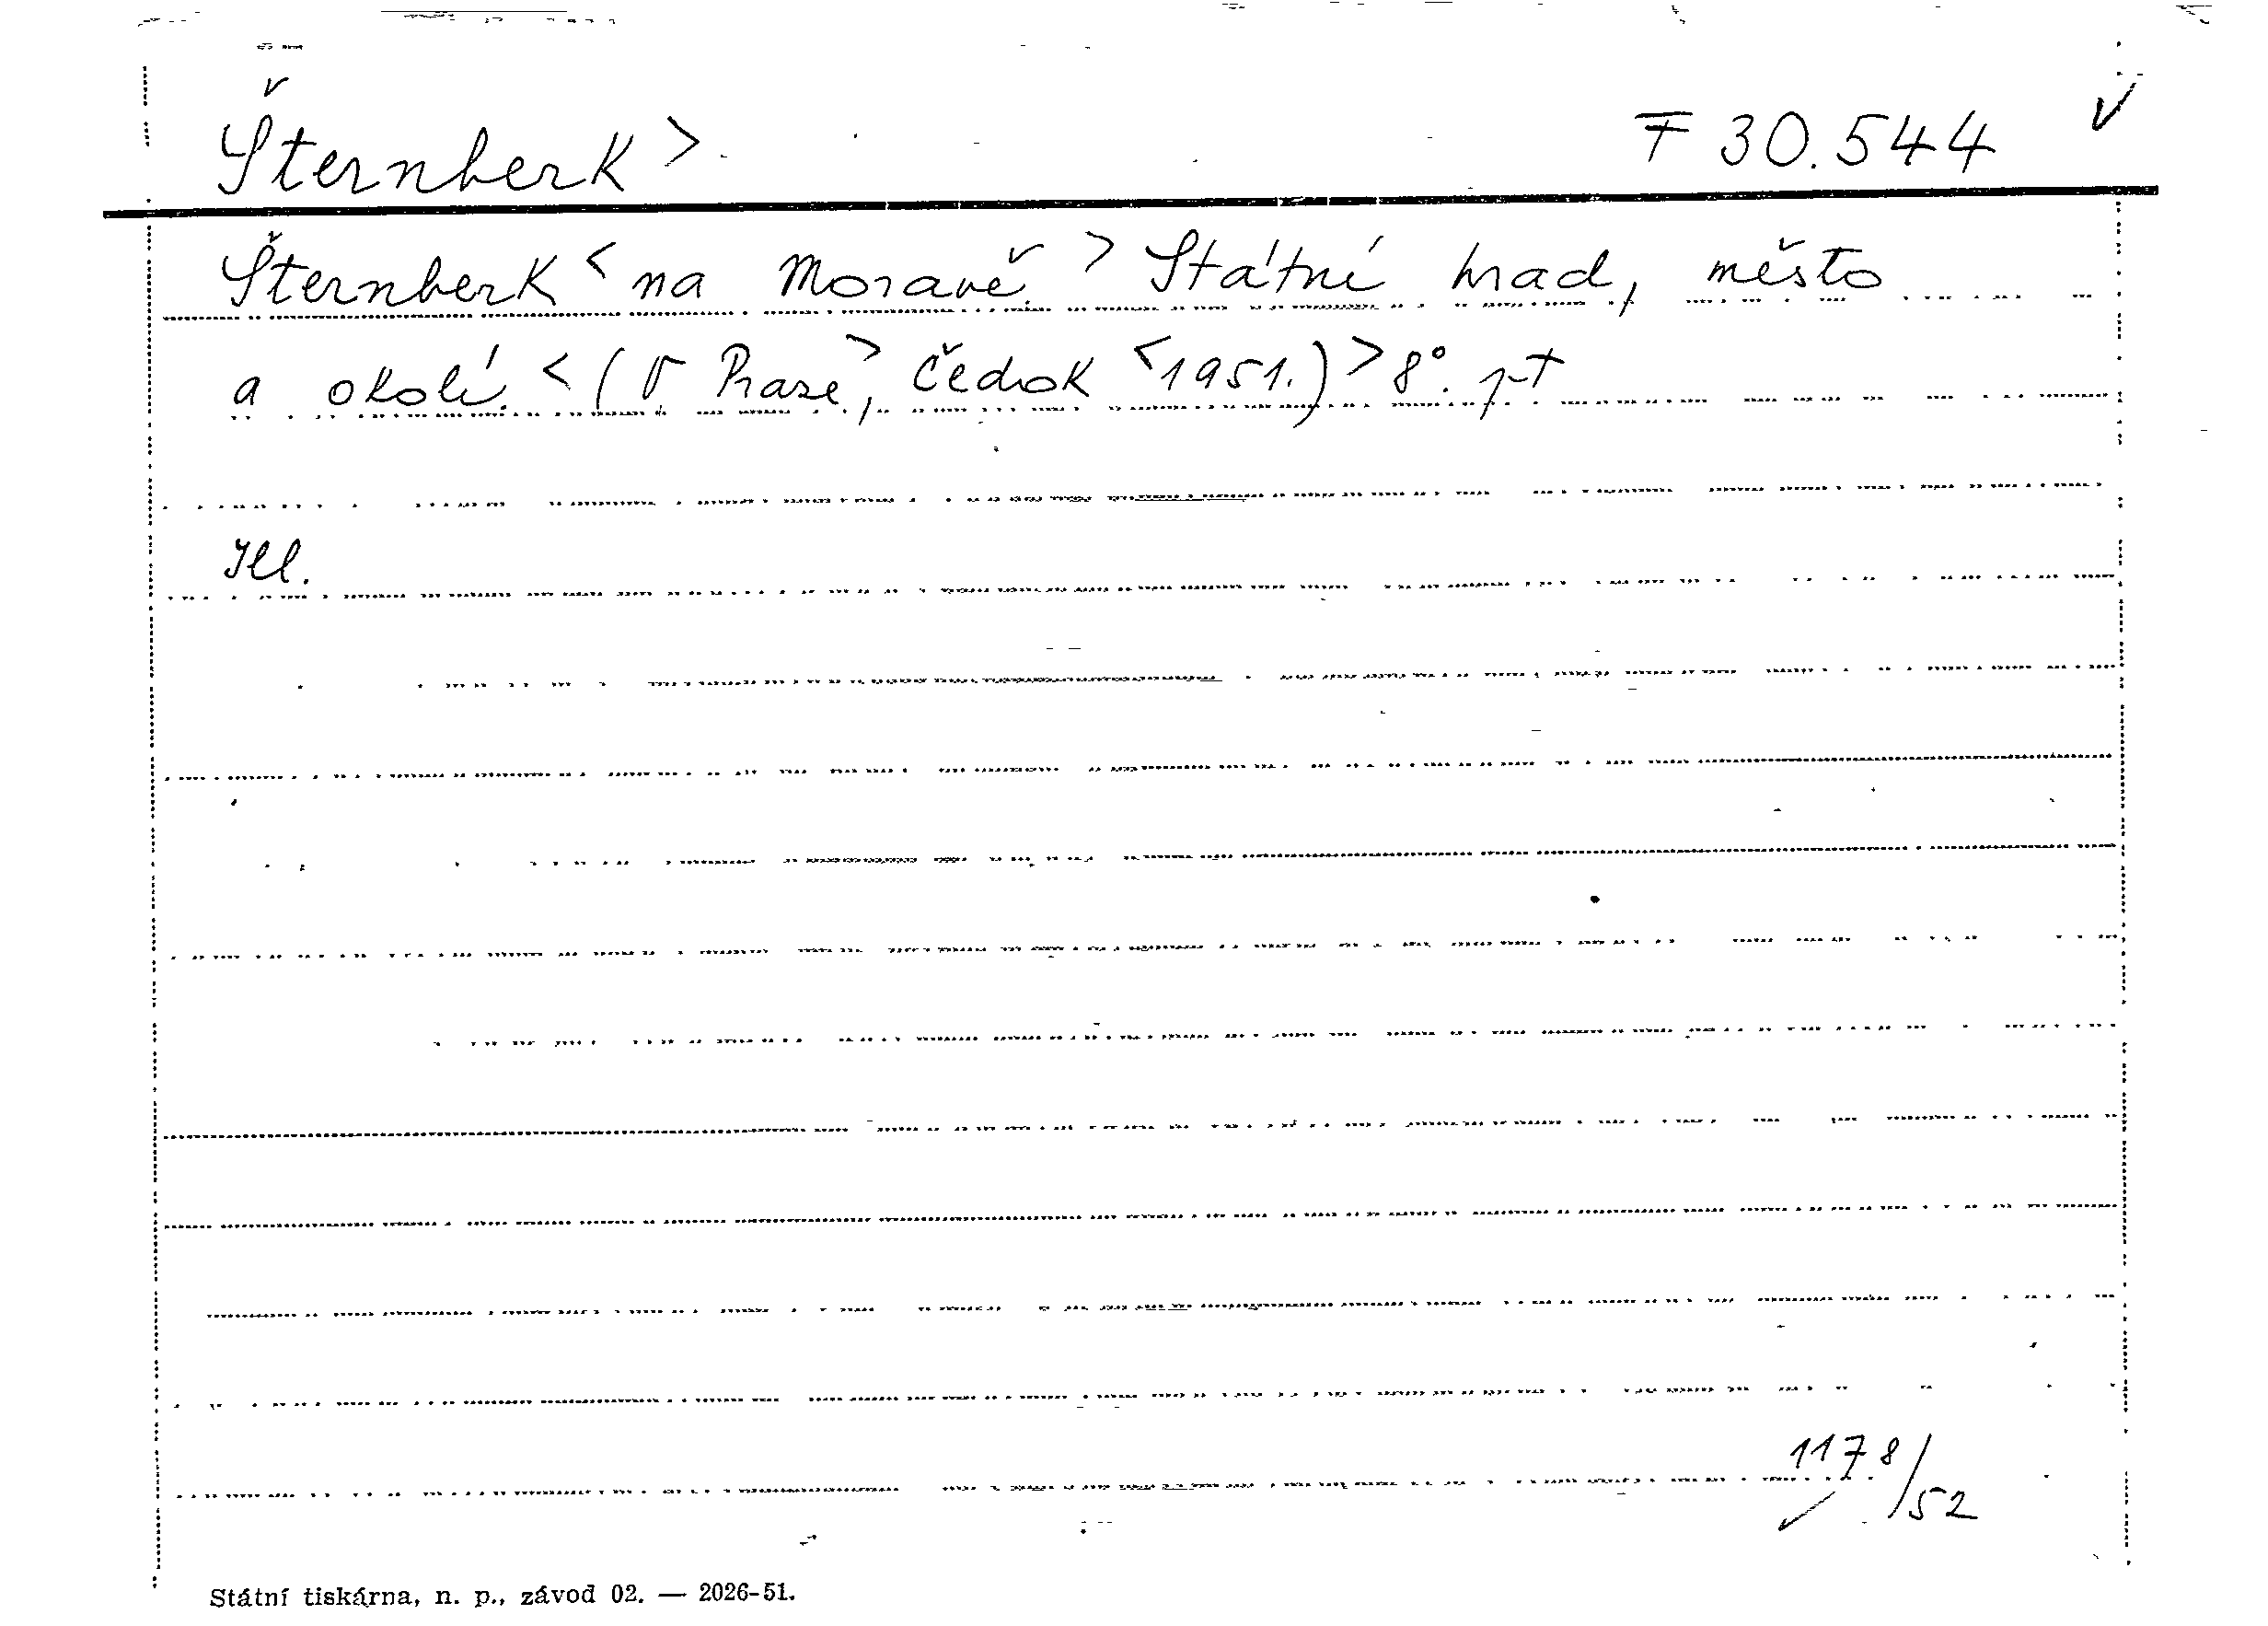 Šternberk >
F 30.544 √
Šternberk < na Moravě. > Státní hrad, město
a okolí. < (V Praze >, Čedok < 1951.) > 8°.
Ill.
1178/52
Státní tiskárna, n. p., závod 02. — 2026-51.